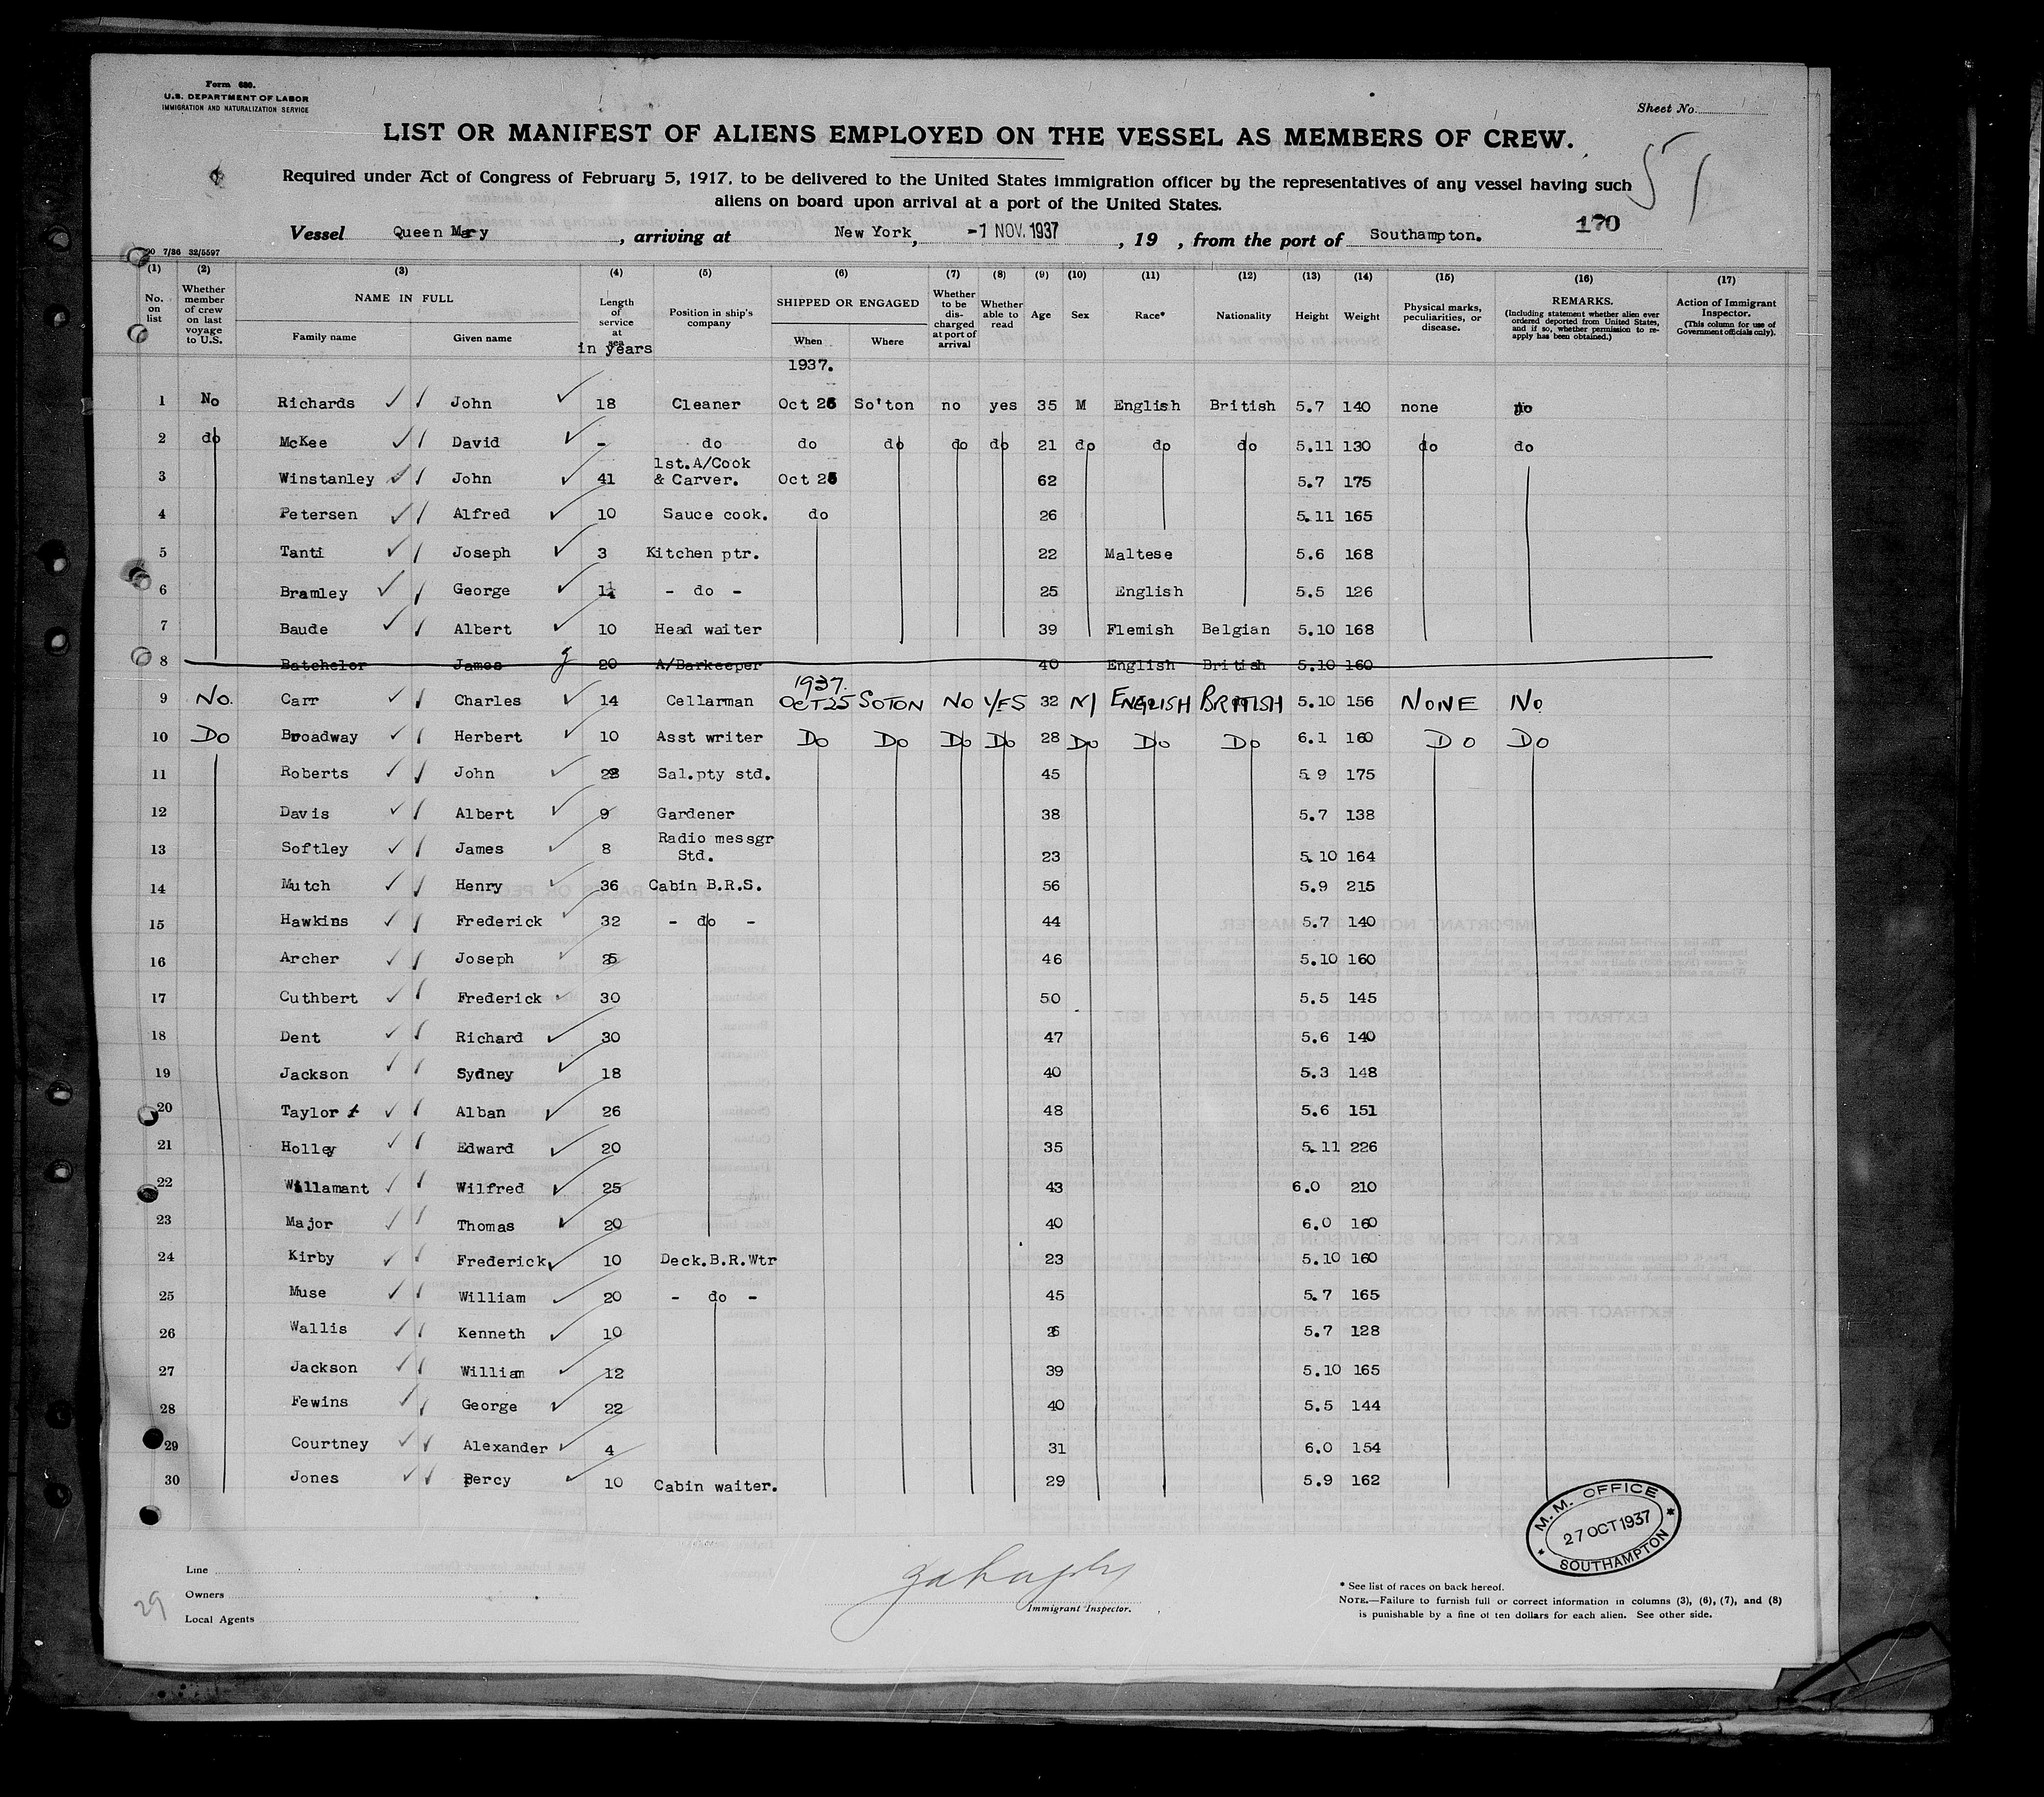 Form 680.
U.S. DEPARTMENT OF LABOR
IMMIGRATION AND NATURALIZATION SERVICE
Sheet No.
LIST OR MANIFEST OF ALIENS EMPLOYED ON THE VESSEL AS MEMBERS OF CREW.
Required under Act of Congress of February 5, 1917, to be delivered to the United States immigration officer by the representatives of any vessel having such
aliens on board upon arrival at a port of the United States.
170
Vessel Queen Mary, arriving at New York, -1 NOV. 1937, 19 , from the port of Southampton.
7/36 32/5597
(1) (2) (3) (4) (5) (6) (7) (8) (9) (10) (11) (12) (13) (14) (15) (16) (17)
No. on list
Whether member of crew on last voyage to U.S.
NAME IN FULL
Family name Given name
Length of service at sea
in years
Position in ship's company
SHIPPED OR ENGAGED
When Where
Whether to be discharged at port of arrival
Whether able to read
Age Sex Race* Nationality Height Weight
Physical marks, peculiarities, or disease.
REMARKS.
(Including statement whether alien ever ordered deported from United States, and if so, whether permission to reapply has been obtained.)
Action of Immigrant Inspector.
(This column for use of Government officials only).
1937.
1 No Richards John 18 Cleaner Oct 26 So'ton no yes 35 M English British 5.7 140 none no
2 do McKee David - do do do do do 21 do do do 5.11 130 do do
3 Winstanley John 41 1st.A/Cook & Carver. Oct 25 62 5.7 175
4 Petersen Alfred 10 Sauce cook. do 26 5.11 165
5 Tanti Joseph 3 Kitchen ptr. 22 Maltese 5.6 168
6 Bramley George 1¼ - do - 25 English 5.5 126
7 Baude Albert 10 Head waiter 39 Flemish Belgian 5.10 168
8 Batchelor James 20 A/Barkeeper 40 English British 5.10 160
1937.
9 No. Carr Charles 14 Cellarman OCT 25 SOTON NO YES 32 M ENGLISH BRITISH 5.10 156 NONE NO
10 Do Broadway Herbert 10 Asst writer Do Do Do Do 28 Do Do Do 6.1 160 Do Do
11 Roberts John Sal.pty std. 45 5 9 175
12 Davis Albert 9 Gardener 38 5.7 138
13 Softley James 8 Radio messgr Std. 23 5.10 164
14 Mutch Henry 36 Cabin B.R.S. 56 5.9 215
15 Hawkins Frederick 32 - do - 44 5.7 140
16 Archer Joseph 25 46 5.10 160
17 Cuthbert Frederick 30 50 5.5 145
18 Dent Richard 30 47 5.6 140
19 Jackson Sydney 18 40 5.3 148
20 Taylor Alban 26 48 5.6 151
21 Holley Edward 20 35 5.11 226
22 Willamant Wilfred 25 43 6.0 210
23 Major Thomas 20 40 6.0 160
24 Kirby Frederick 10 Deck.B.R.Wtr 23 5.10 160
25 Muse William 20 - do - 45 5.7 165
26 Wallis Kenneth 10 5.7 128
27 Jackson William 12 39 5.10 165
28 Fewins George 22 40 5.5 144
29 Courtney Alexander 4 31 6.0 154
30 Jones Percy 10 Cabin waiter. 29 5.9 162
M.M. OFFICE
27 OCT 1937
SOUTHAMPTON
Line
Owners
Local Agents
29
Immigrant Inspector.
* See list of races on back hereof.
NOTE.—Failure to furnish full or correct information in columns (3), (6), (7), and (8)
is punishable by a fine of ten dollars for each alien. See other side.